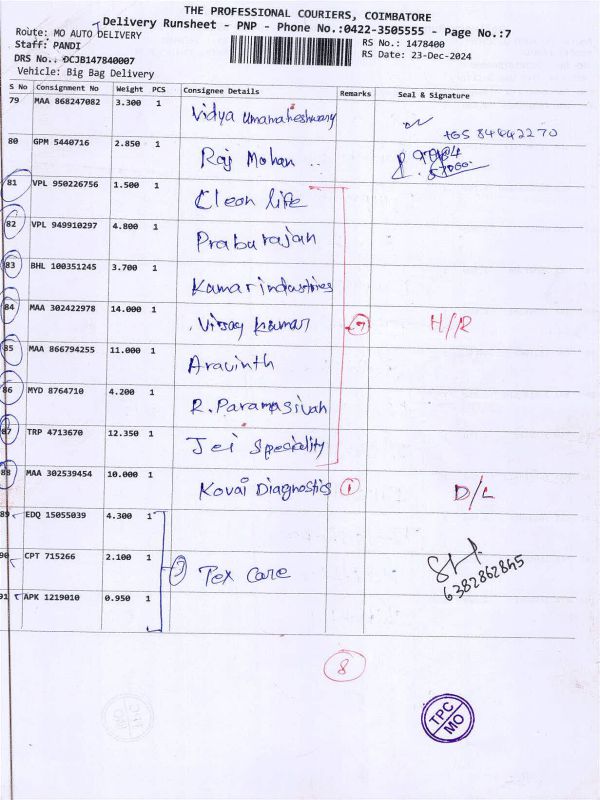 THE PROFESSIONAL COURIERS, COIMBATORE
Delivery Runsheet - PNP - Phone No.:0422-3505555 - Page No.:7
Route: MO AUTO DELIVERY
Staff: PANDI
RS No.: 1478400
DRS No.. DCJB147840007
RS Date: 23-Dec-2024
Vehicle: Big Bag Delivery
S No Consignment No Weight PCS Consignee Details Remarks Seal & Signature
79 MAA 868247082 3.300 1 Vidya Umamaheshwary
80 GPM 5440716 2.850 1 Raj Mohan ..
81 VPL 950226756 1.500 1 Clean life
82 VPL 949910297 4.800 1 Praburajan
83 BHL 100351245 3.700 1 Kumar industries
84 MAA 302422978 14.000 1 Kumar 7 H/R
85 MAA 866794255 11.000 1 Aravinth
86 MYD 8764710 4.200 1 R. Paramasivah
87 TRP 4713670 12.350 1 Jei Speciality
88 MAA 302539454 10.000 1 Kovai Diagnostics 1 D/L
89 EDQ 15055039 4.300 1
90 CPT 715266 2.100 1 3 Tex Care 6382862865
91 APK 1219010 0.950 1
8
TPC
MO